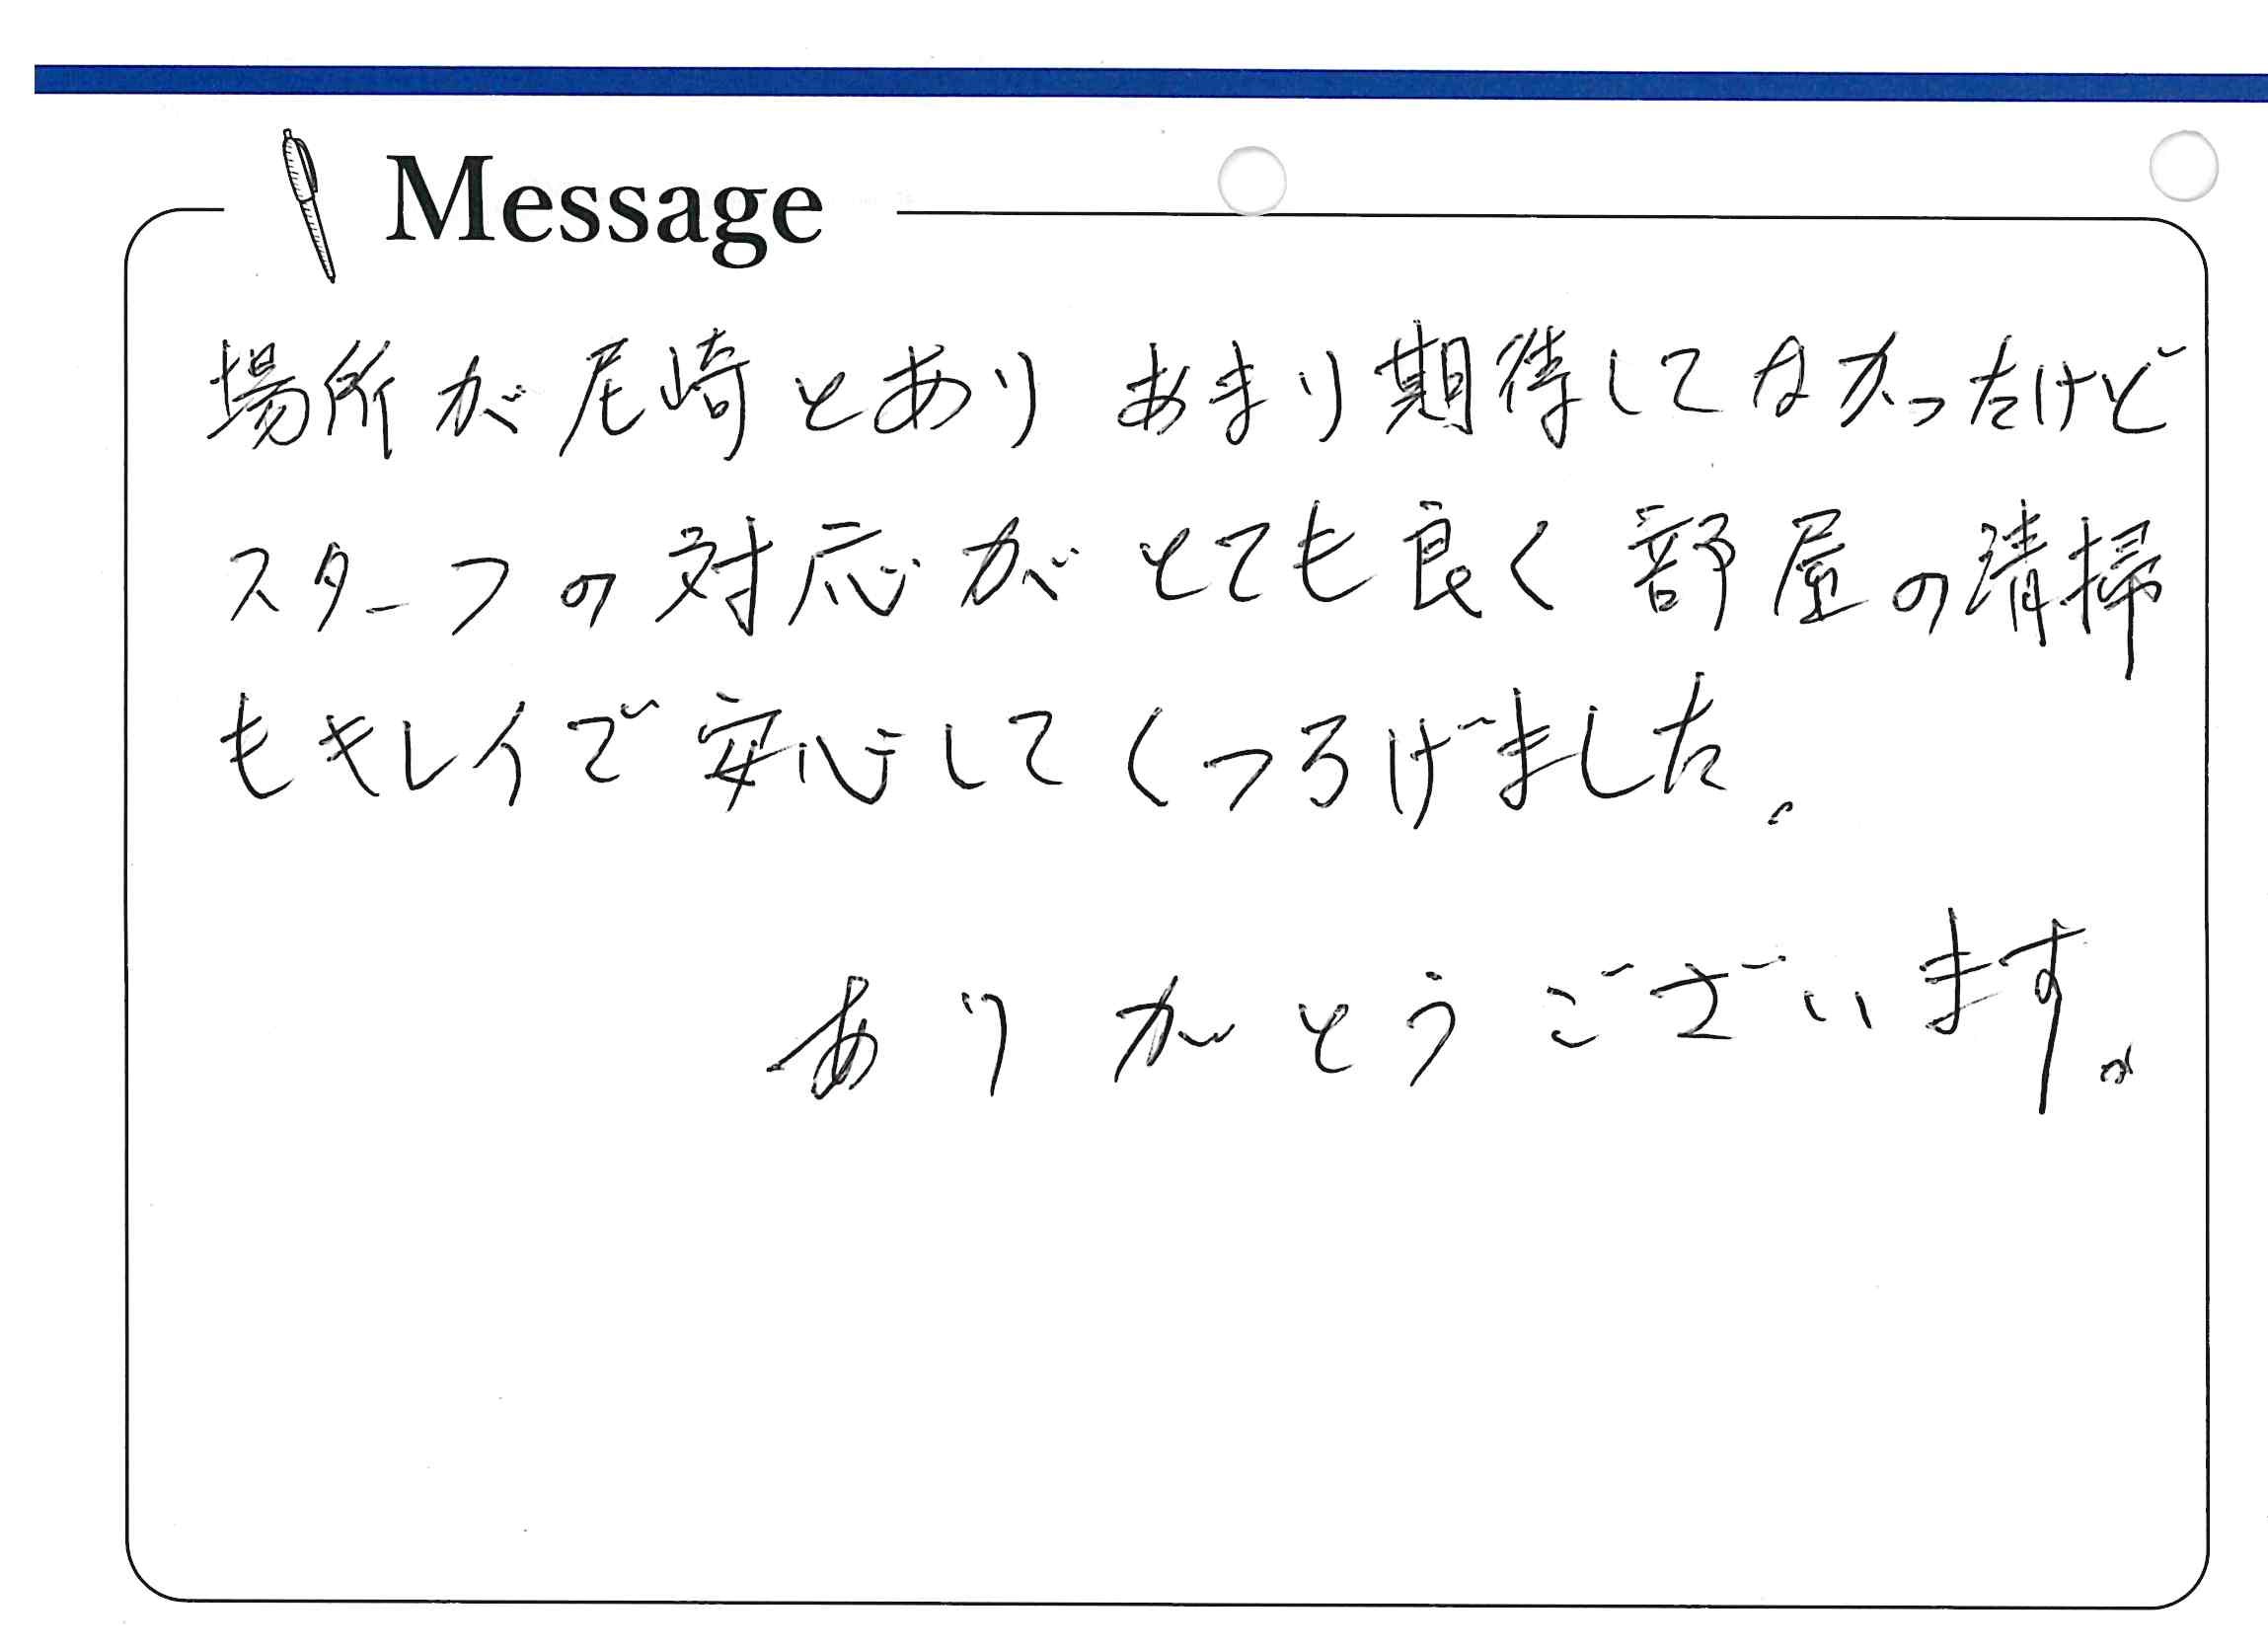 Message
場所が尼崎とあり あまり期待してなかったけど
スタッフの対応がとても良く 部屋の清掃
もキレイで安心してくつろげました。
ありがとうございます。